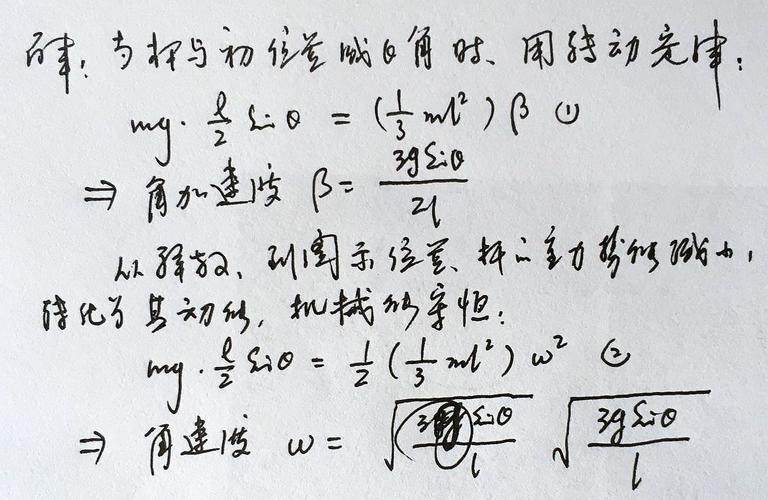 解:当杆与初位置成θ角时、用转动定律:
mg·l/2 sinθ = (1/3 ml²) β ①
⇒ 角加速度 β = 3g sinθ / 2l
从释放、到图示位置、杆的重力势能减小,
转化为其动能,机械能守恒:
mg·l/2 sinθ = 1/2 (1/3 ml²) ω² ②
⇒ 角速度 ω = √(3g sinθ / l)